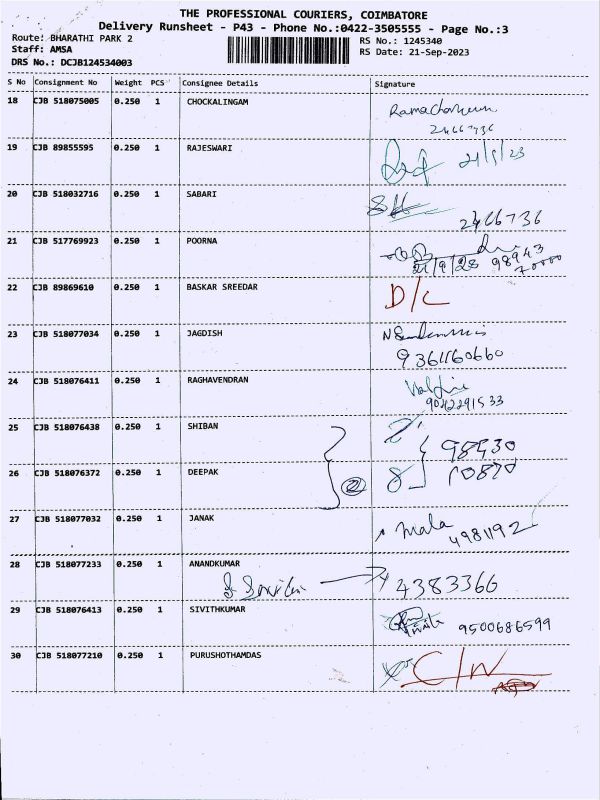 THE PROFESSIONAL COURIERS, COIMBATORE
Delivery Runsheet - P43 - Phone No.:0422-3505555 - Page No.:3
Route: BHARATHI PARK 2
RS No.: 1245340
Staff: AMSA
RS Date: 21-Sep-2023
DRS No.: DCJB124534003
S No Consignment No Weight PCS Consignee Details Signature
18 CJB 518075005 0.250 1 CHOCKALINGAM
2466736
19 CJB 89855595 0.250 1 RAJESWARI
20 CJB 518032716 0.250 1 SABARI
2466736
21 CJB 517769923 0.250 1 POORNA
98943
70000
22 CJB 89869610 0.250 1 BASKAR SREEDAR D/C
23 CJB 518077034 0.250 1 JAGDISH
9361160660
24 CJB 518076411 0.250 1 RAGHAVENDRAN
9042291533
25 CJB 518076438 0.250 1 SHIBAN
98430
26 CJB 518076372 0.250 1 DEEPAK
10870
27 CJB 518077032 0.250 1 JANAK
Mala
28 CJB 518077233 0.250 1 ANANDKUMAR
4383366
29 CJB 518076413 0.250 1 SIVITHKUMAR
9500686599
30 CJB 518077210 0.250 1 PURUSHOTHAMDAS C/N